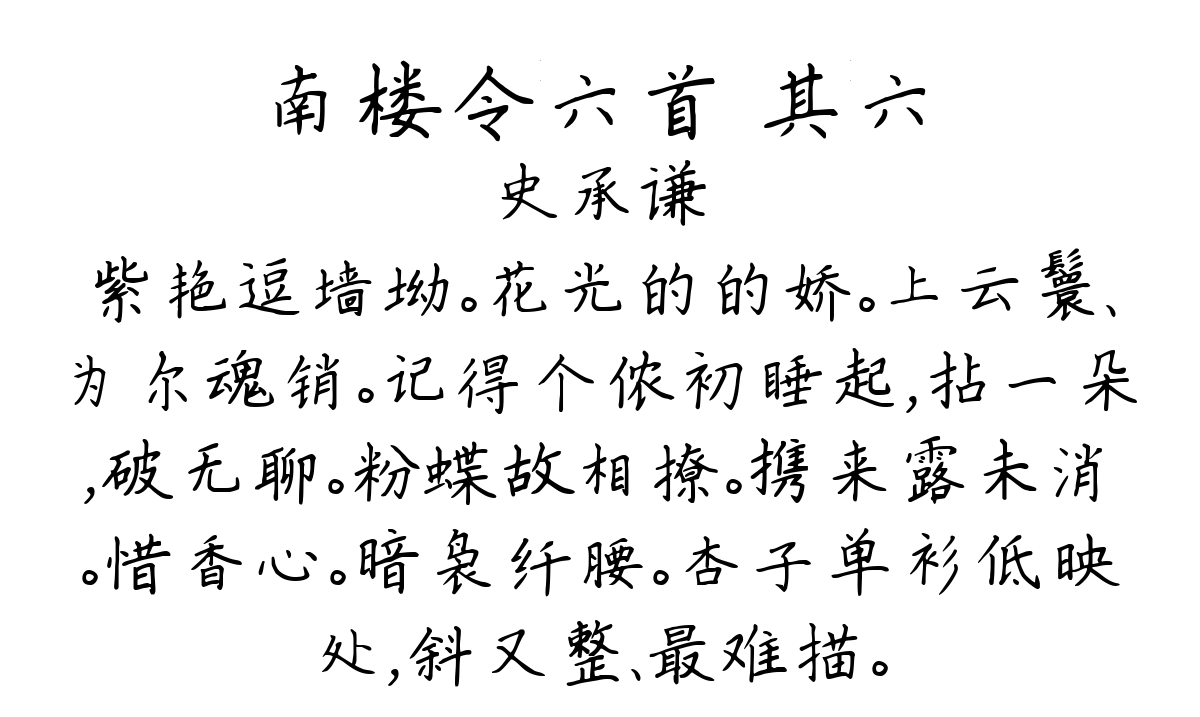 南楼令六首 其六
史承谦
紫艳逗墙坳。花光的的娇。上云鬟、
为尔魂销。记得个侬初睡起,拈一朵
,破无聊。粉蝶故相撩。携来露未消
。惜香心。暗袅纤腰。杏子单衫低映
处,斜又整、最难描。